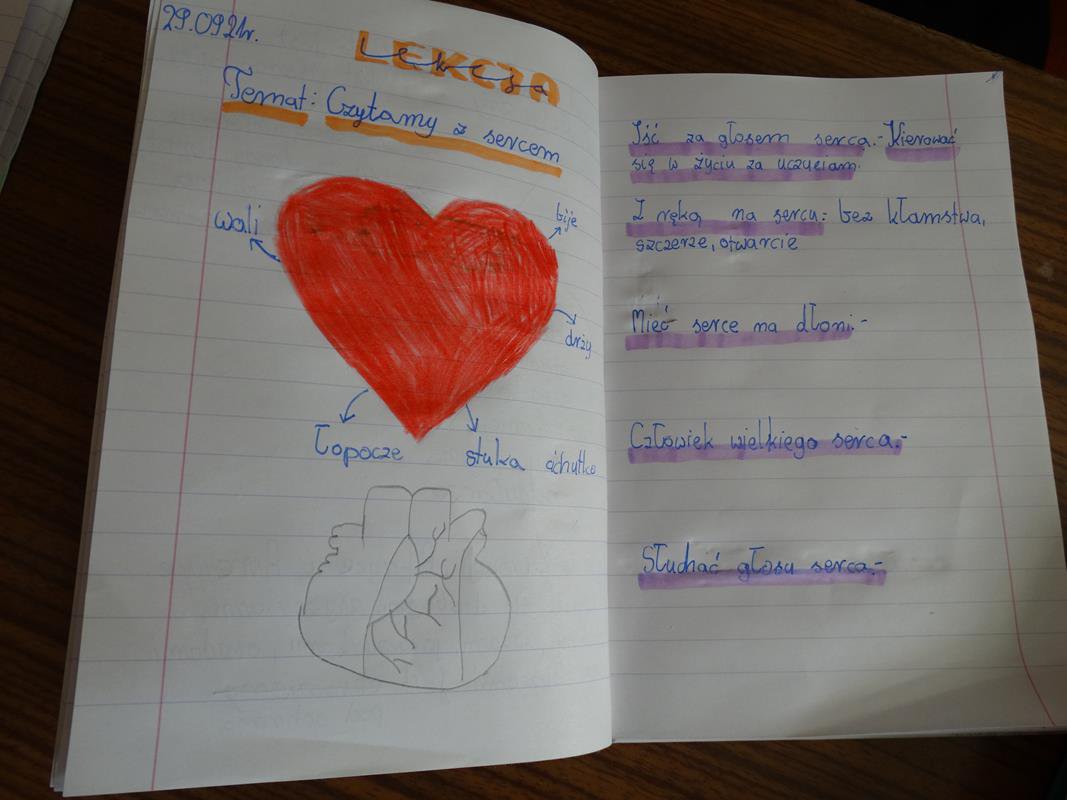 29.09.21r.
LEKCJA
Lekcja
Temat: Czytamy z sercem
wali
bije
drży
łopocze
stuka cichutko
Iść za głosem serca.- Kierować
się w życiu za uczuciam.
Z ręką na sercu: bez kłamstwa,
szczerze, otwarcie
Mieć serce na dłoni.-
Człowiek wielkiego serca.-
Słuchać głosu serca.-